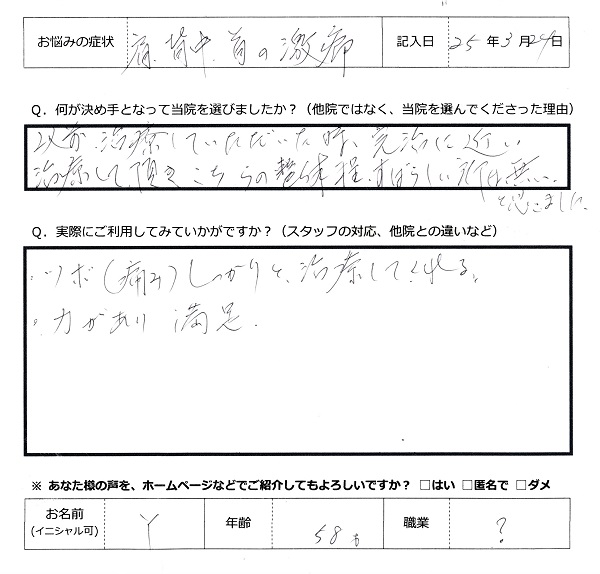 お悩みの症状 肩、背中、首の激痛 記入日 25年3月24日
Q．何が決め手となって当院を選びましたか？（他院ではなく、当院を選んでくださった理由）
以前、治療していただいた時、完治に近い
治療して頂き こちらの整体程、すばらしい所は無い、
と思いました。
Q．実際にご利用してみていかがですか？（スタッフの対応、他院との違いなど）
・ツボ（痛み）しっかりと、治療してくれる。
・力があり 満足．
※ あなた様の声を、ホームページなどでご紹介してもよろしいですか？ □はい □匿名で □ダメ
お名前 Y 年齢 58才 職業 ？
(イニシャル可)